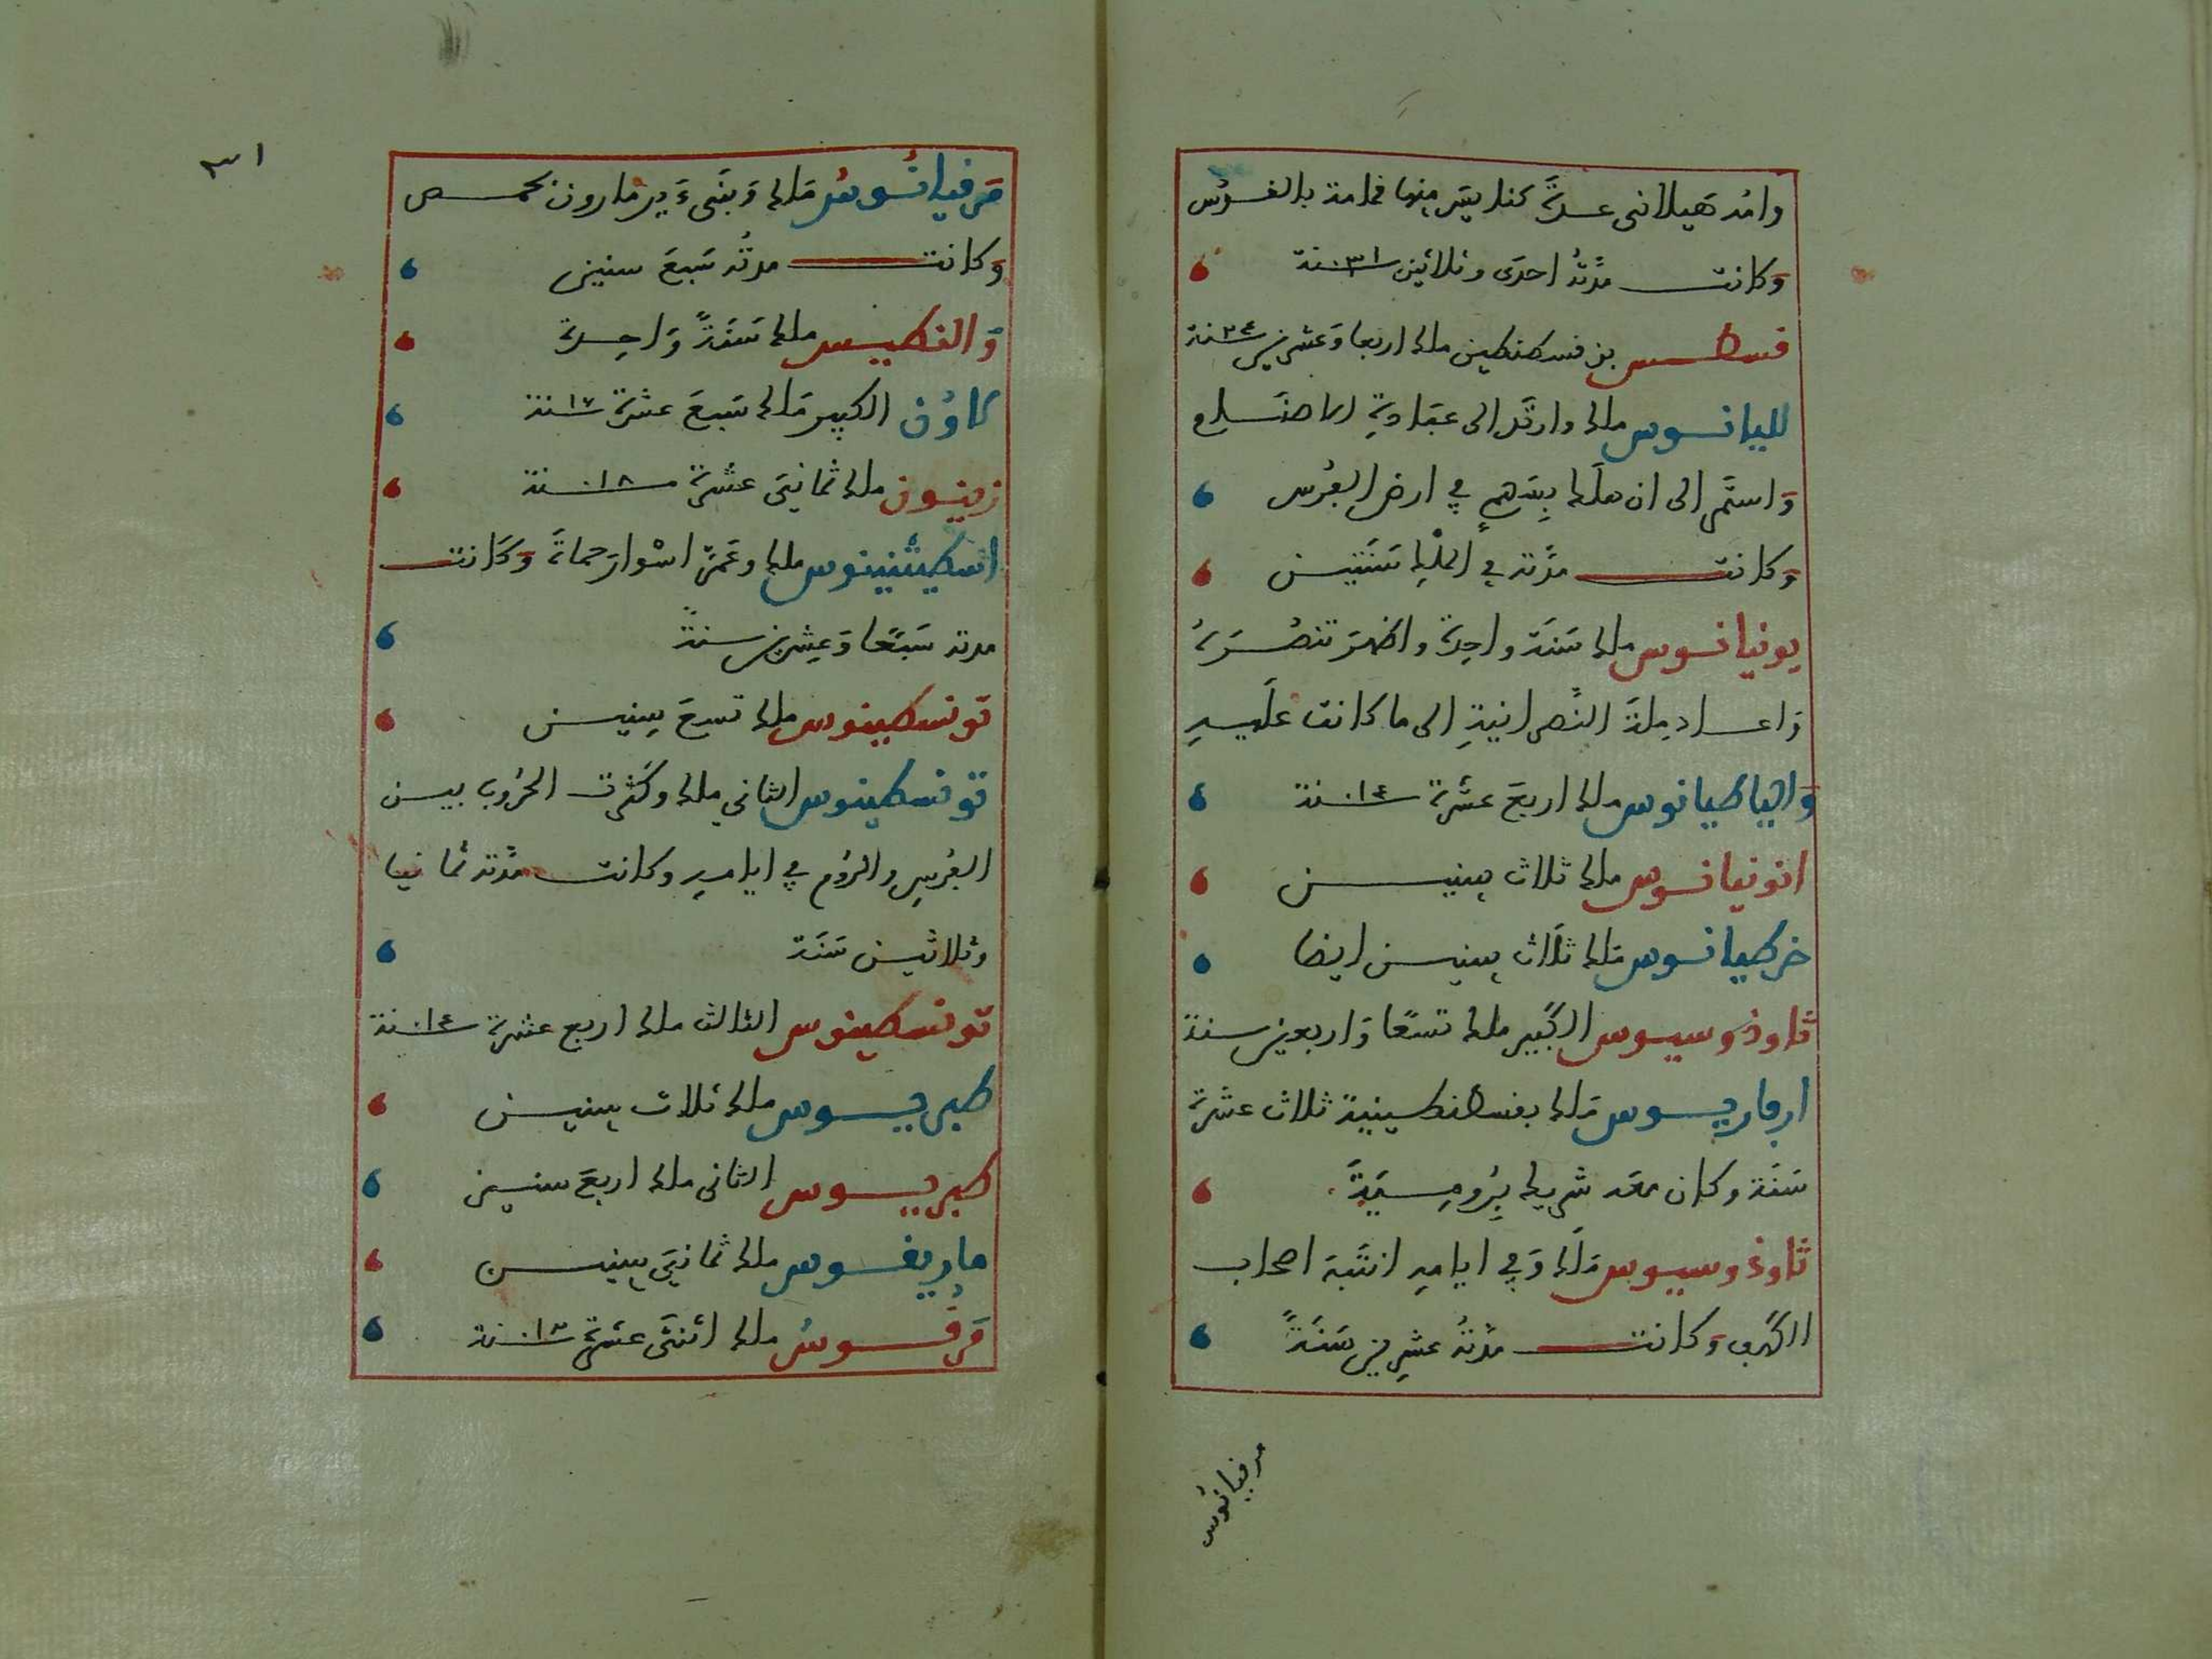 وامه هيلانى عدة كنايس منها قمامة بالقدس
وكانت مدته احدى وثلاثين ٣١ سنة
قسطس بن قسطنطين ملك اربعا وعشرين ٢٤ سنة
لليانوس ملك وارتد الى عبادة الاصنام
واستمر الى ان هلك بسهم في ارض الفرس
وكانت مدته في الملك سنتين
يونيانوس ملك سنة واحدة واظهر تنصره
واعاد ملة النصرانية الى ما كانت عليه
والياطيانوس ملك اربع عشرة ١٤ سنة
انونيانوس ملك ثلاث سنين
خرطيانوس ملك ثلاث سنين ايضا
ثاوذوسيوس الكبير ملك تسعا واربعين سنة
ارقاريوس ملك بقسطنطينية ثلاث عشرة
سنة وكان معه شريك برومية
ثاوذوسيوس ملك وفي ايامه انتبه اصحاب
الكهف وكانت مدته عشرين سنة
مرقيانوس
٣١
مرقيانوس ملك وبنى دير مارون بحمص
وكانت مدته سبع سنين
والنطيس ملك سنة واحدة
لاون الكبير ملك سبع عشرة ١٧ سنة
زينون ملك ثمانى عشرة ١٨ سنة
اسطيثنينوس ملك وعمر اسوار حماة وكانت
مدته سبعا وعشرين سنة
تونسطينوس ملك تسع سنين
تونسطينوس الثاني ملك وكثرت الحروب بين
الفرس والروم في ايامه وكانت مدته ثمانيا
وثلاثين سنة
تونسطينوس الثالث ملك اربع عشرة ١٤ سنة
طبريوس ملك ثلاث سنين
طبريوس الثانى ملك اربع سنين
ماريقوس ملك ثمانى سنين
مرقوس ملك اثنتى عشرة سنة